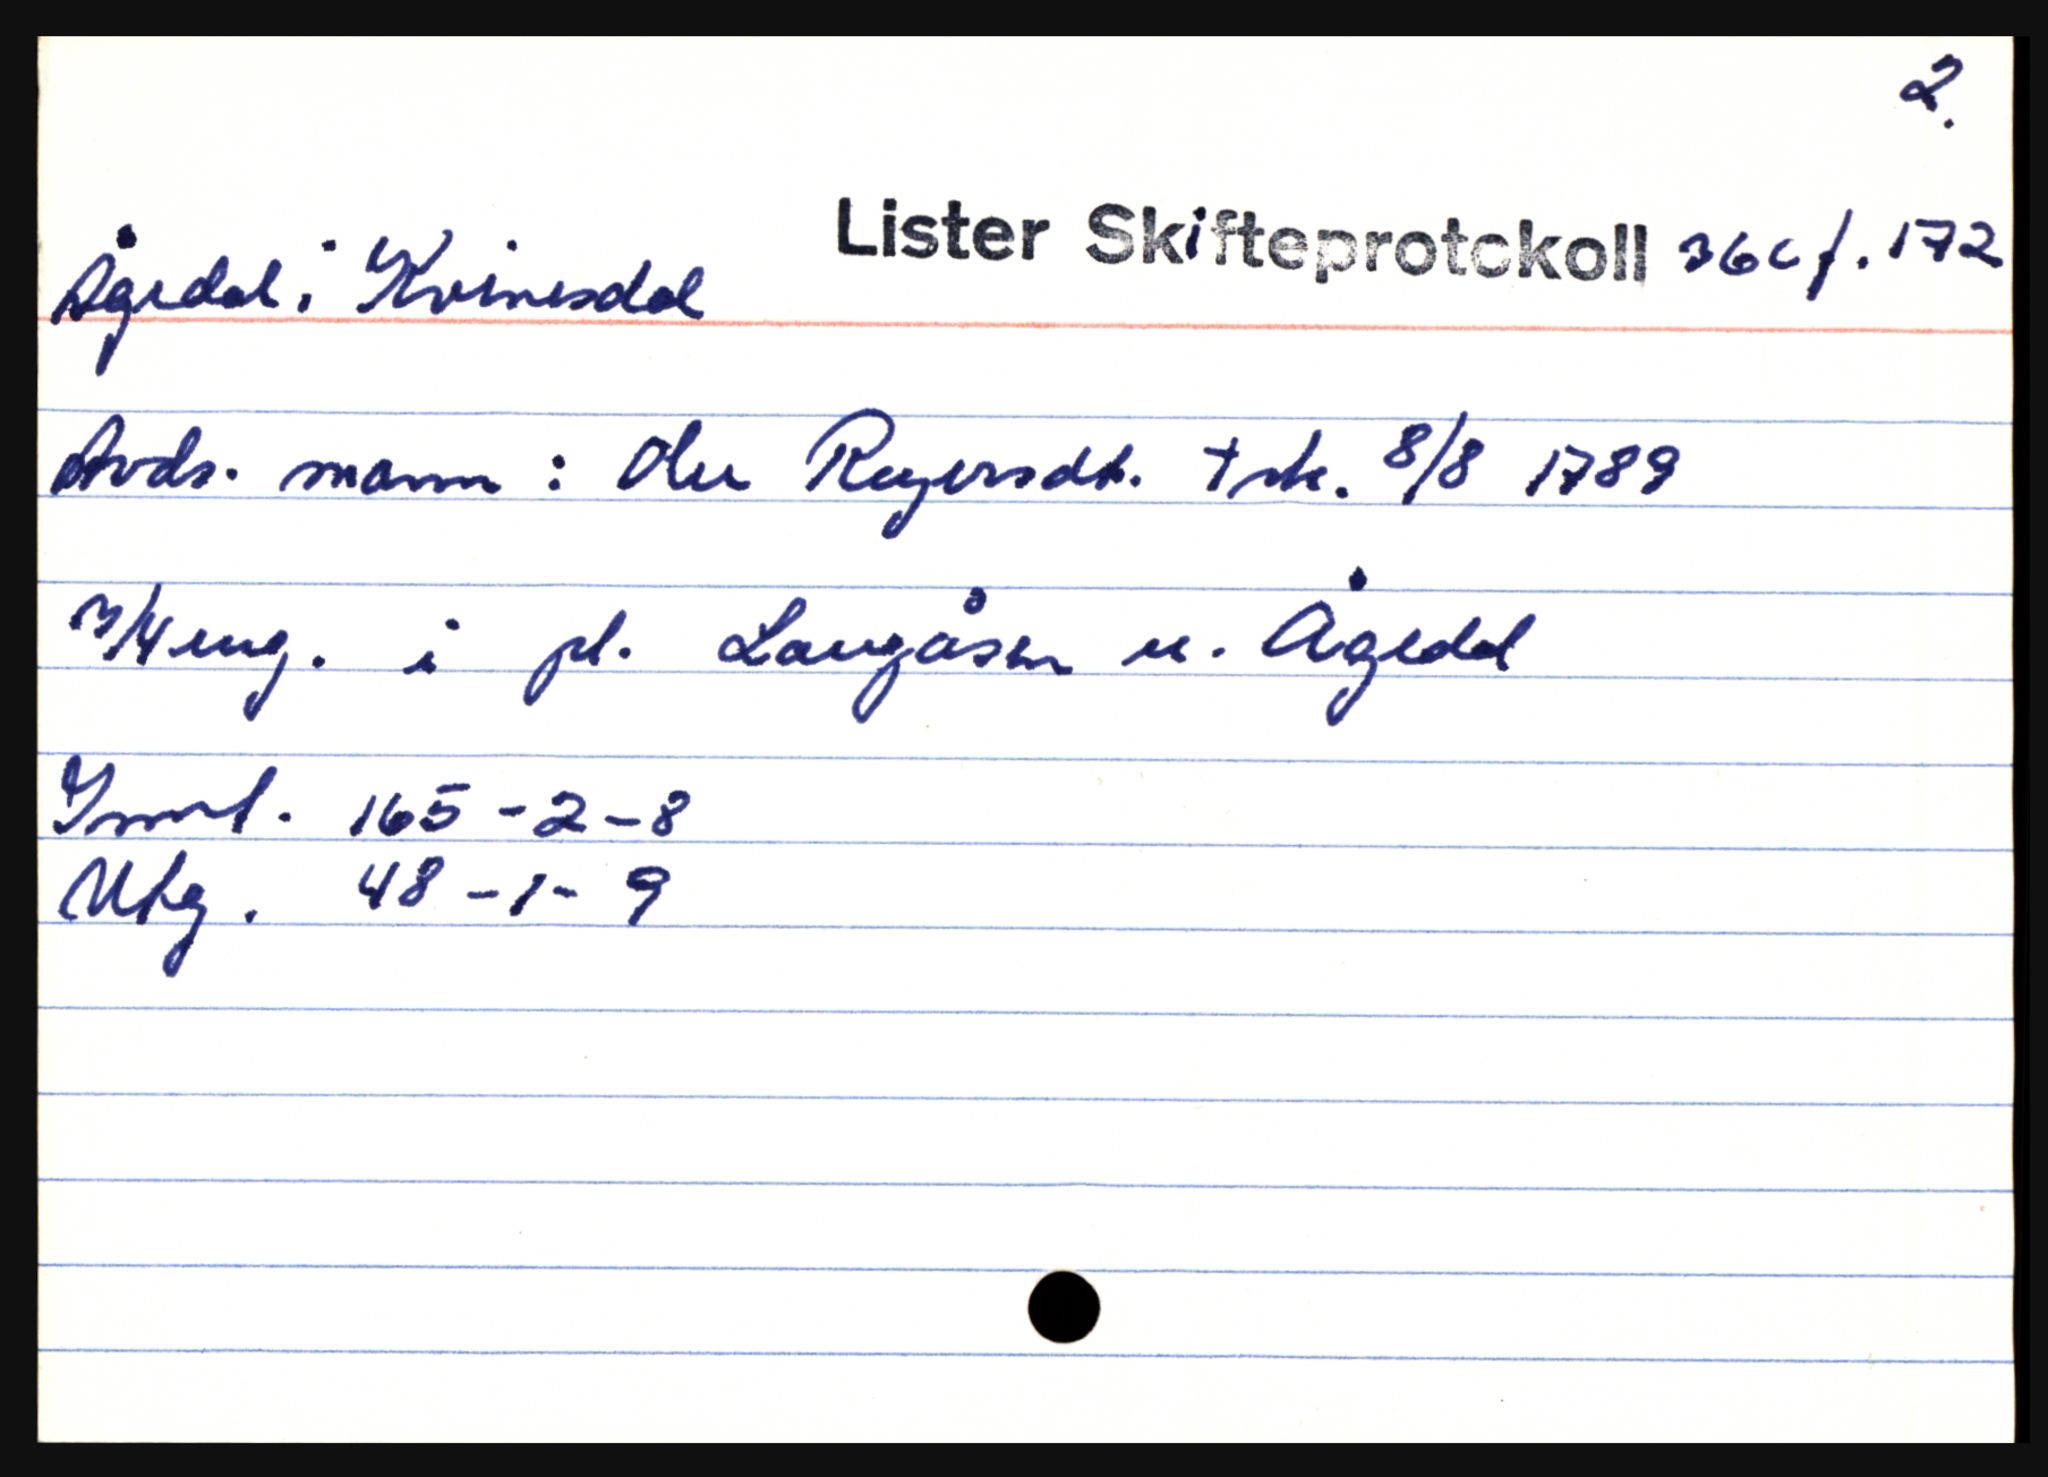 2.
Lister Skifteprotokoll 36c f. 172
Ågedal i Kvinesdal
Avds. mann: Ole Reyersdt. + sk. 8/8 1789
3/4 eng. i pl. Langåsen u. Ågedal
Innt. 165-2-8
Utg. 48-1-9